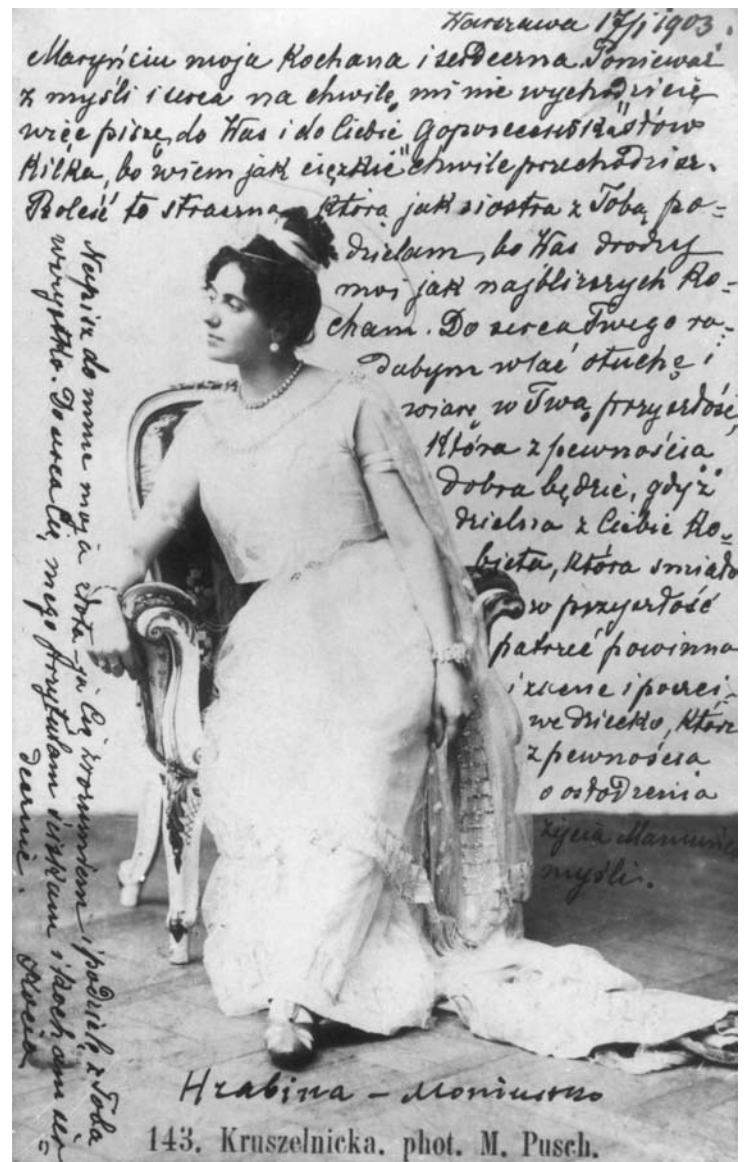 Warszawa 17/I 1903.
Maryńciu moja Kochana i serdeczna Ponieważ
z myśli i serca na chwilę mi nie wychodzicie
więc piszę do Was i do Ciebie słów
Kilka, bo wiem jak ciężkie chwile przechodzisz.
Boleść to straszna, którą jak siostra z Tobą po=
dzielam, bo Was drodzy
moi jak najbliższych Ko=
cham. Do serca Twego ra=
dabym wlać otuchę i
wiarę w Twą przyszłość,
Która z pewnością
dobrą będzie, gdyż
dzielna z Ciebie Ko=
bieta, Która śmiało
w przyszłość
patrzeć powinna
i zacne i poczci=
we dziecko, Które
z pewnością
o osłodzenia
życia Mamusi
myśli.
Napisz do mnie moja złota – ja Cię zrozumiem i podzielę z Tobą
wszystko. Do serca Cię mego przytulam ściskam i kocham ser
decznie.
Hrabina – Moniuszko
143. Kruszelnicka. phot. M. Pusch.